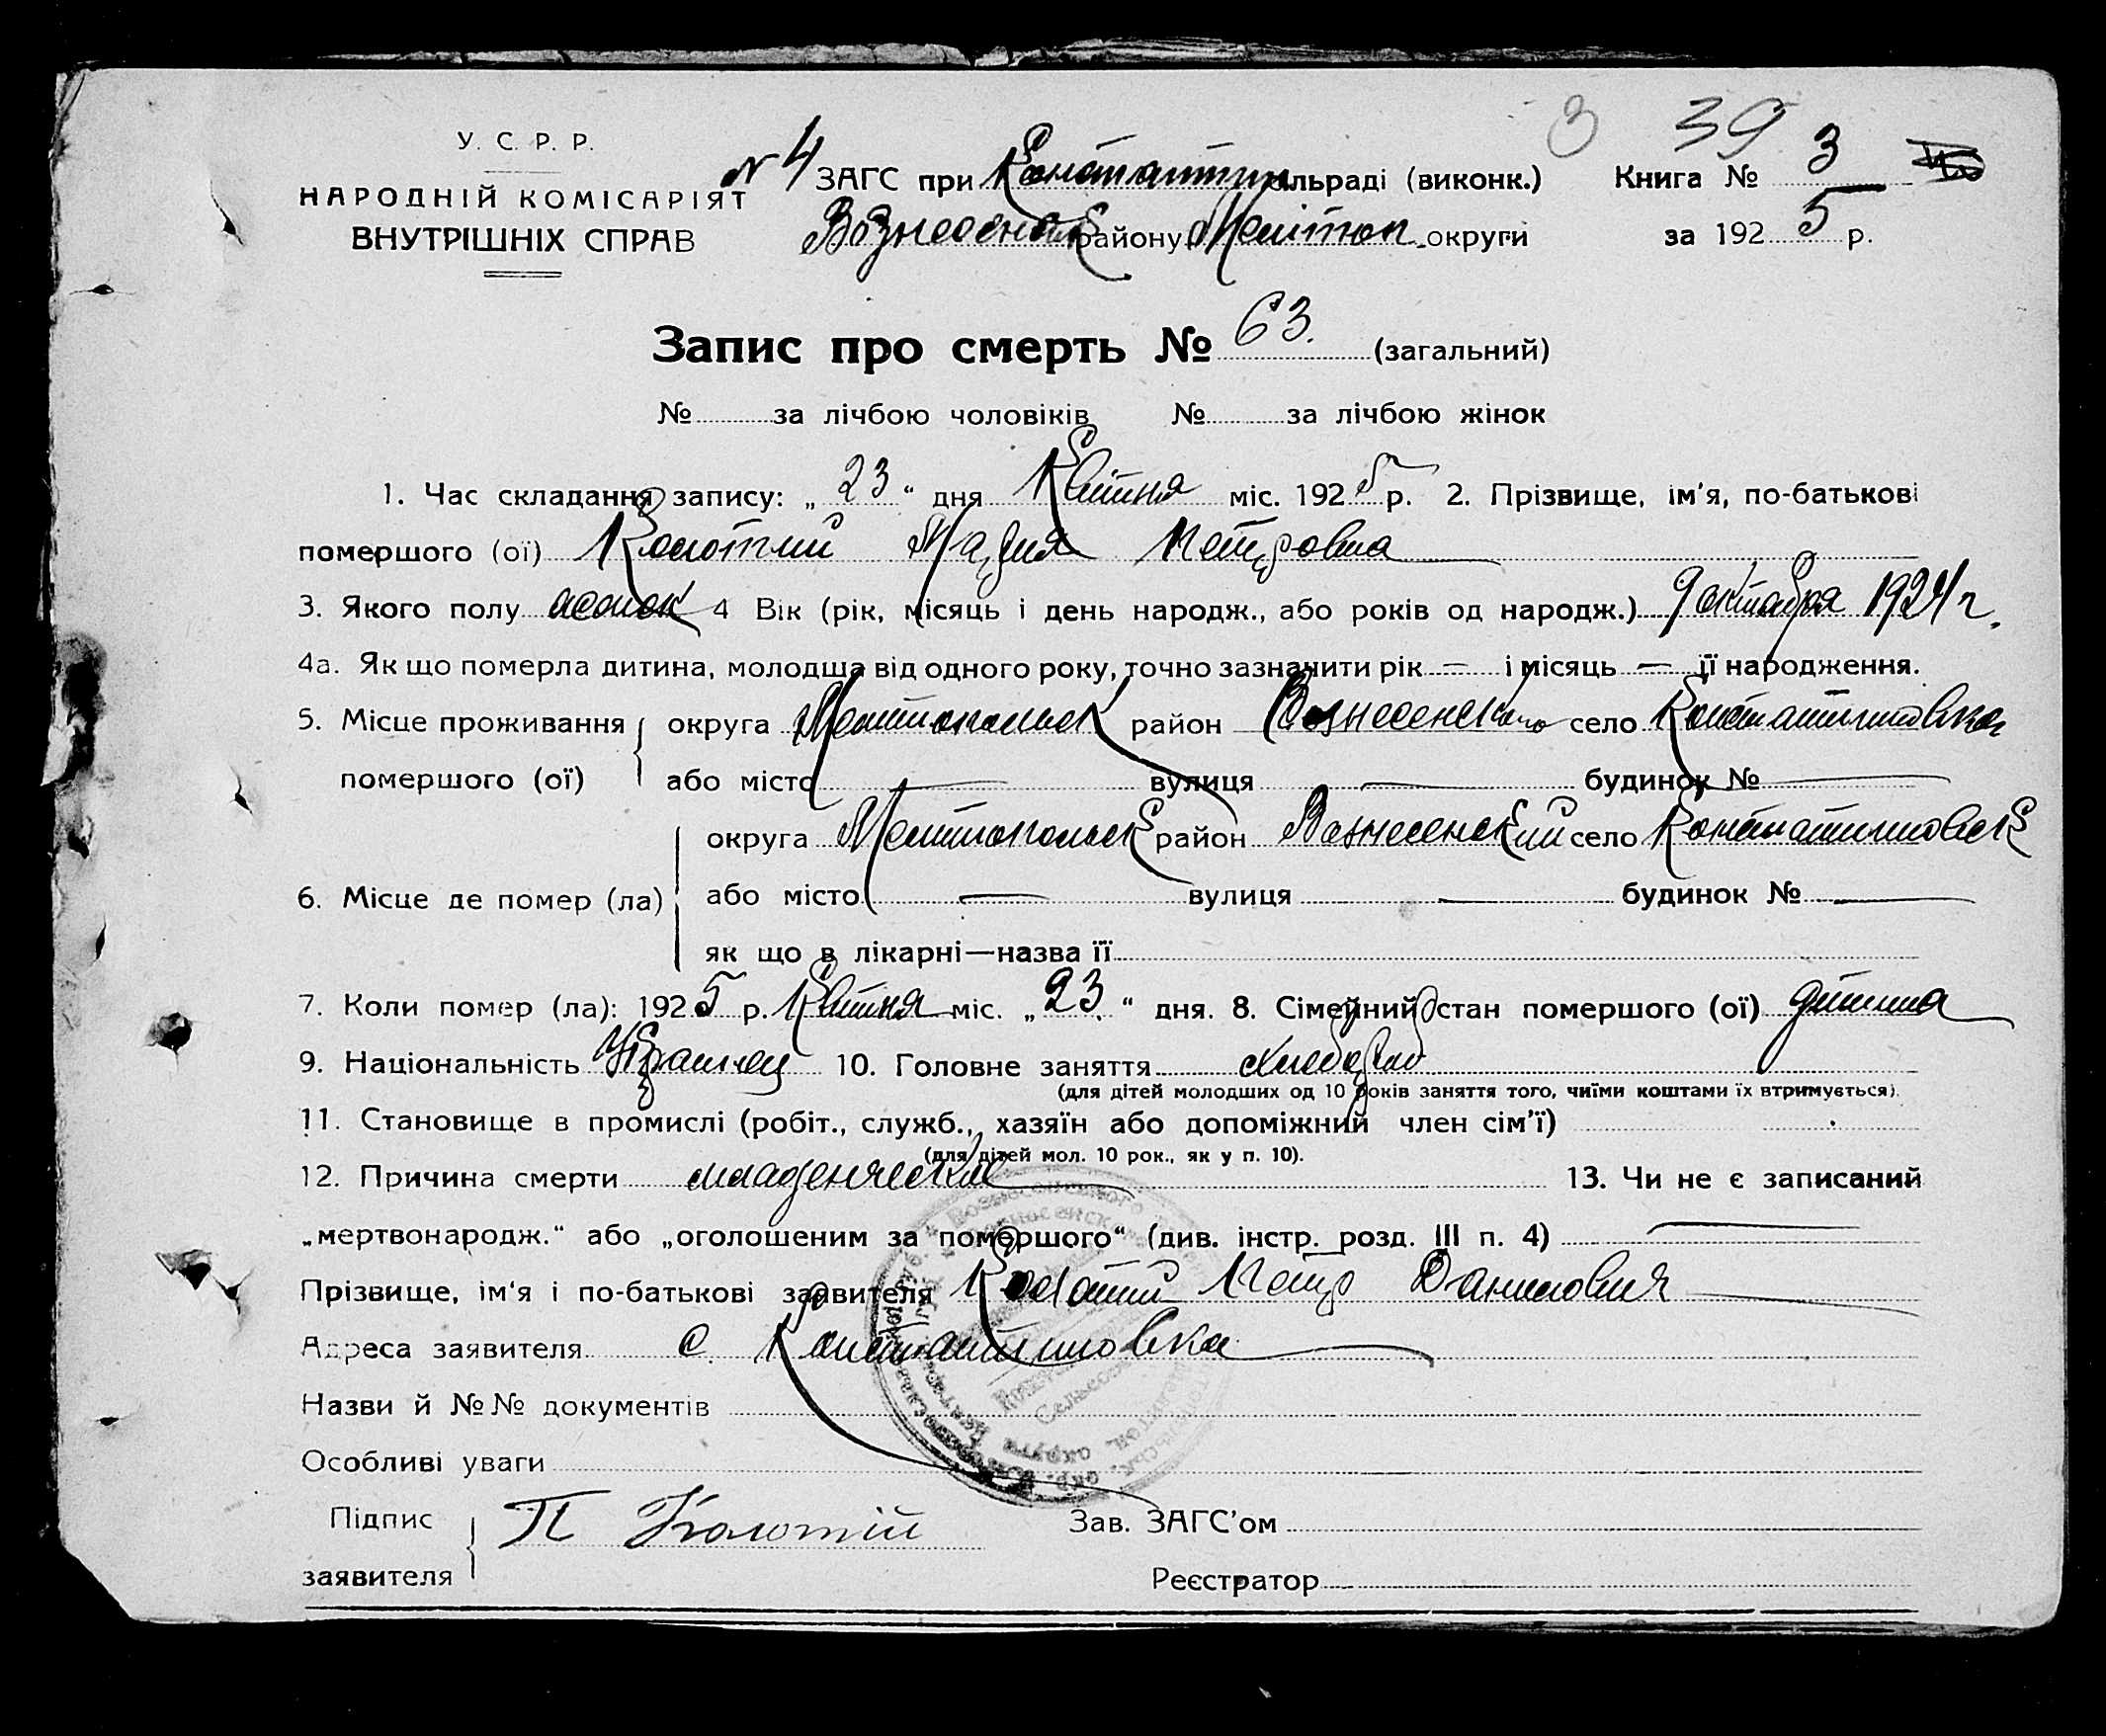 3 39
У. С. Р. Р.
НАРОДНІЙ КОМІСАРІЯТ
ВНУТРІШНІХ СПРАВ
№ 4 ЗАГС при Константин сільраді (виконк.) Книга № 3
Вознесенск району Мелітоп. округи за 1925 р.
Запис про смерть № 63. (загальний)
№ за лічбою чоловіків № за лічбою жінок
1. Час складання запису: „23“ дня Квітня міс. 1925 р. 2. Прізвище, ім'я, по-батькові
помершого (ої) Колотий Мария Петровна
3. Якого полу 4 Вік (рік, місяць і день народж., або років од народж.) 9 октября 1924 г.
4а. Як що померла дитина, молодша від одного року, точно зазначити рік — і місяць — її народження.
5. Місце проживання округа Мелитопольск район Вознесенск село Константиновка
помершого (ої) або місто — вулиця — будинок № —
округа Мелитопольск район Вознесенский село Константиновск
6. Місце де помер (ла) або місто — вулиця — будинок № —
як що в лікарні—назва її
7. Коли помер (ла): 1925 р. Квітня міс. „23“ дня. 8. Сімейний стан помершого (ої) дитина
9. Національність Украинец 10. Головне заняття хлебороб
(для дітей молодших од 10 років заняття того, чиїми коштами їх втримується).
11. Становище в промислі (робіт., служб., хазяїн або допоміжний член сім'ї)
(для дітей мол. 10 рок., як у п. 10).
12. Причина смерти младенческая 13. Чи не є записаний
„мертвонародж.“ або „оголошеним за помершого“ (див. інстр. розд. III п. 4) —
Прізвище, ім'я і по-батькові заявителя Колотий Петр Данилович
Адреса заявителя с. Константиновка
Назви й №№ документів
Особливі уваги
Підпис П Колотій Зав. ЗАГС'ом
заявителя Реєстратор